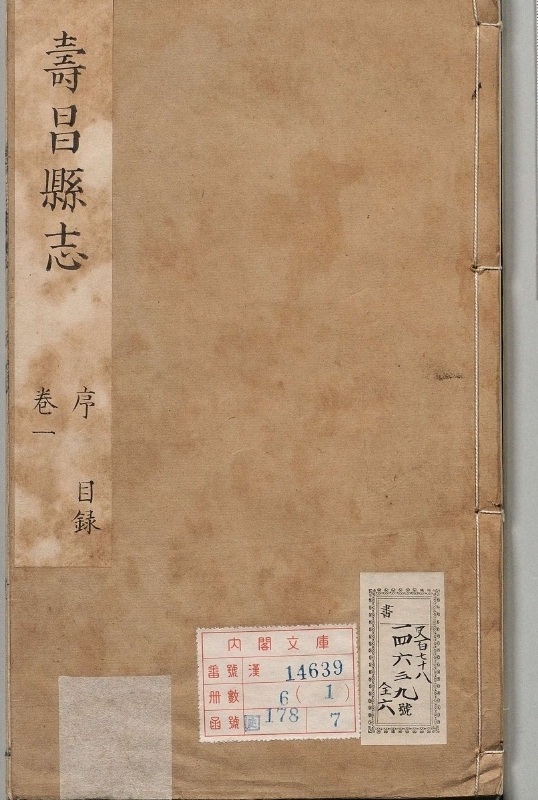 壽昌縣志
序 目録
卷一
内閣文庫
番號 漢 14639
册數 6(1)
函號 178 7
書
一四六三九號
全六